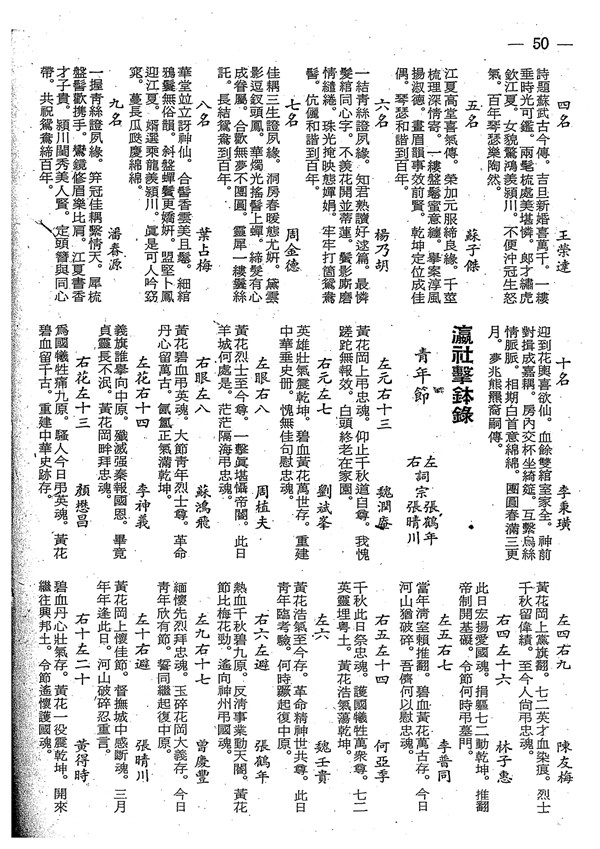 — 50 —
四名　王榮達
詩題蘇武古今傳。吉旦新婚喜萬千。一縷
垂時光可鑑。兩髦梳處美堪憐。郎才繡虎
欽江夏。女貌驚鴻羡潁川。不便沖冠生怒
氣。百年琴瑟樂陶然。
五名　蘇子傑
江夏高堂喜氣傳。榮加元服締良緣。千莖
梳理深情寄。一縷盤鬆蜜意纏。舉案淳風
揚淑德。畫眉韻事效前賢。乾坤定位成佳
偶。琴瑟和諧到百年。
六名　楊乃胡
一結青絲證夙緣。知君熟讀好逑篇。最憐
髮綰同心字。不羨花開並蒂蓮。鬢影廝磨
情繾綣。珠光掩映態嬋娟。牢牢打箇鴛鴦
髻。伉儷和諧到百年。
七名　周金德
佳耦三生證夙緣。洞房春暖態尤妍。黛雲
影逗釵頭鳳。華燭光搖髻上蟬。締髮有心
成眷屬。合歡無夢不團圓。靈犀一縷鬟絲
託。長結鴛鴦到百年。
八名　葉占梅
華堂並立訝神仙。合髻香雲美且鬈。細綰
鴉鬟無俗韻。斜盤蟬鬢更嬌妍。盟堅卜鳳
迎江夏。婿選乘龍美潁川。眞是可人吟窈
窕。蔓長瓜瓞慶綿綿。
九名　潘春源
一握青絲證夙緣。笄冠佳耦繫情天。犀梳
盤髻歡携手。鸞鏡修眉樂比肩。江夏書香
才子貴。潁川閨秀美人賢。定頭簪與同心
帶。共祝鴛鴦締百年。
十名　李秉璜
迎到花輿喜欲仙。血餘雙綰室家全。神前
對揖成嘉耦。房內交杯坐綺筵。互繫烏絲
情脈脈。相期白首意綿綿。團圓春滿三更
月。夢兆熊羆裔嗣傳。
瀛社擊鉢錄
青年節
左詞宗　張鶴年
右詞宗　張晴川
左元右十三　魏潤庵
黃花岡上弔忠魂。仰止千秋道自尊。我愧
蹉跎無報效。白頭終老在家園。
右元左七　劉斌峯
英雄壯氣震乾坤。碧血黃花萬世存。重建
中華垂史册。愧無佳句慰忠魂。
左眼右八　周植夫
黃花烈士至今尊。一擊眞堪懾帝閽。此日
羊城何處是。茫茫隔海弔忠魂。
右眼左八　蘇鴻飛
黃花碧血弔英魂。大節青年烈士尊。革命
丹心留萬古。氤氳正氣滿乾坤。
左花右十四　李神義
義旗誰舉向中原。殲滅强秦報國恩。畢竟
貞靈長不泯。黃花岡畔拜忠魂。
右花左十三　顏懋昌
爲國犧牲痛九原。騷人今日弔英魂。黃花
碧血留千古。重建中華史跡存。
左四右九　陳友梅
黃花岡上黨旗翻。七二英才血染痕。烈士
千秋留偉績。至今人尙弔忠魂。
右四左十六　林子惠
此日宏揚愛國魂。捐軀七二動乾坤。推翻
帝制開基礎。令節何時弔墓門。
左五右七　李普同
當年淸室賴推翻。碧血黃花萬古存。今日
河山猶破碎。吾儕何以慰忠魂。
右五左十四　何亞季
千秋此日祭忠魂。護國犧牲萬衆尊。七二
英靈埋粤土。黃花浩氣蕩乾坤。
左六　魏壬貴
黃花浩氣至今存。革命精神世共尊。此日
青年臨考驗。何時蹶起復中原。
右六左避　張鶴年
熱血千秋碧九原。反淸事業動天閽。黃花
節比梅花勁。遙向神州弔國魂。
左九右十七　曾慶豐
緬懷先烈拜忠魂。玉碎花岡大義存。今日
青年欣有節。誓同繼起復中原。
左十右避　張晴川
黃花岡上懷佳節。督撫城中感斷魂。三月
年年逢此日。河山破碎忍重言。
右十左二十　黃得時
碧血丹心壯氣存。黃花一役震乾坤。開來
繼往興邦土。令節遙懷護國魂。